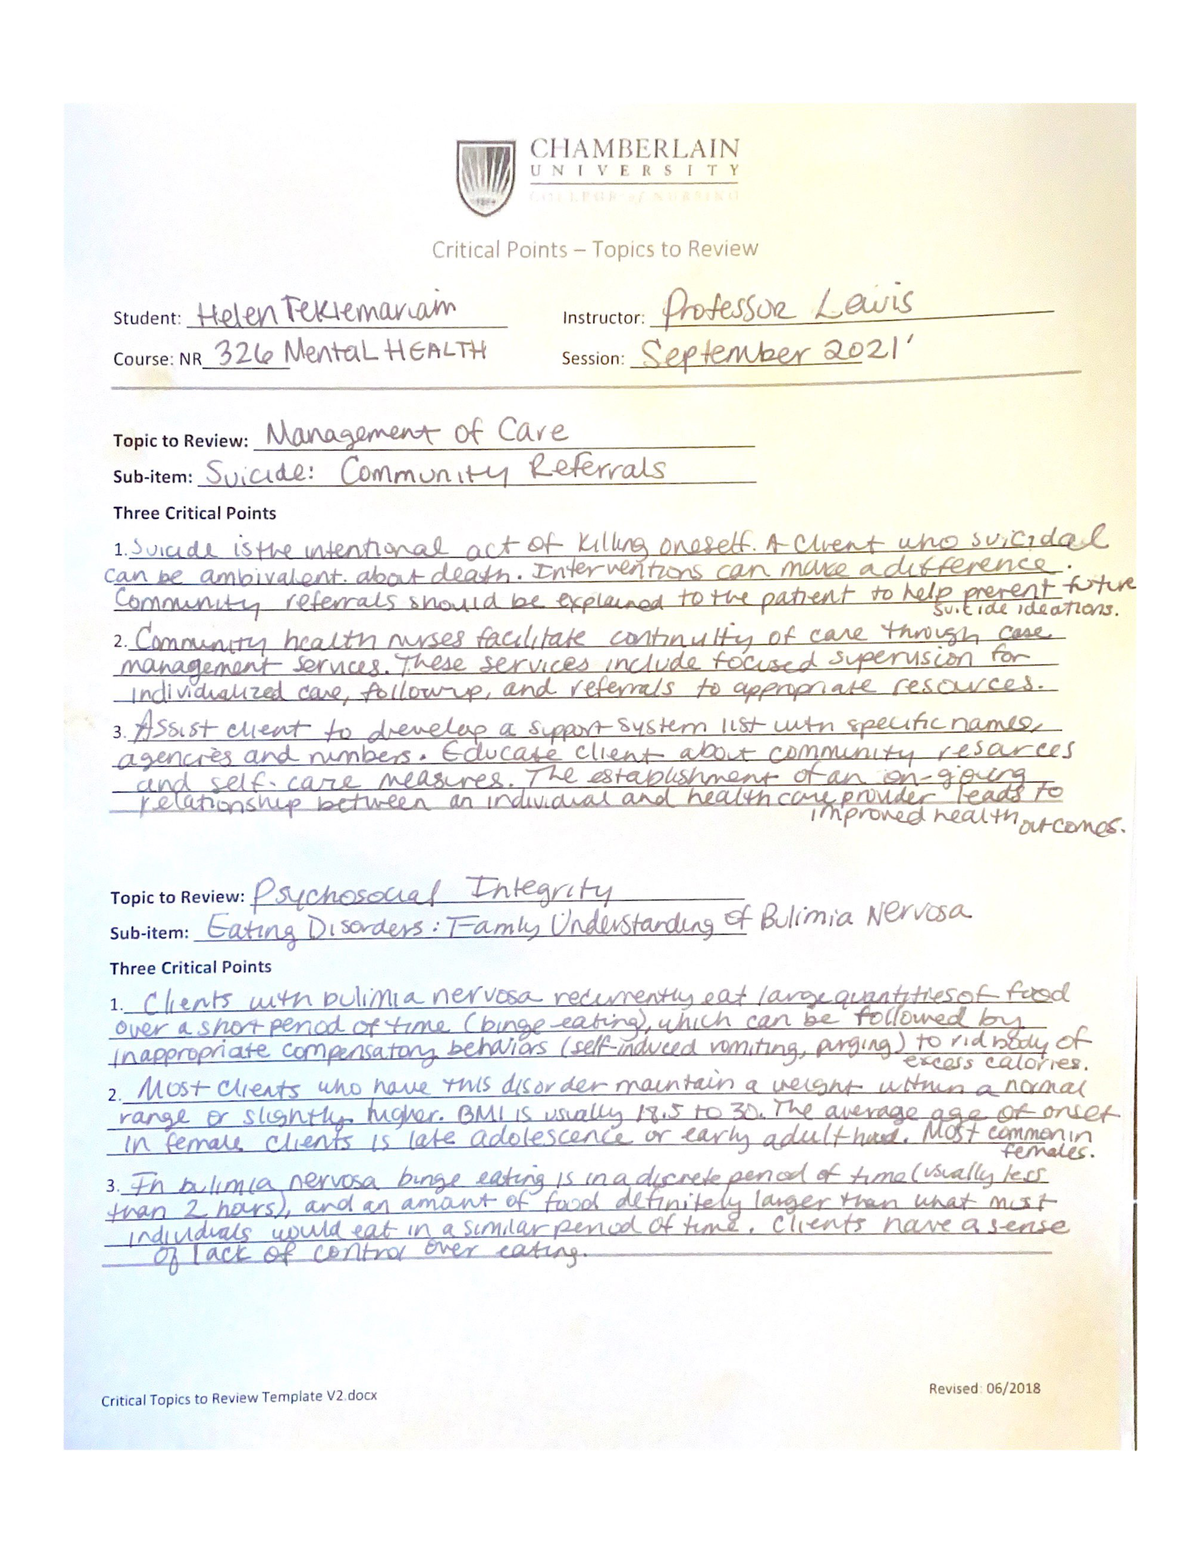 CHAMBERLAIN
UNIVERSITY
COLLEGE of NURSING
Critical Points – Topics to Review
Student: Helen Teklemariam
Instructor: Professor Lewis
Course: NR 326 Mental HEALTH
Session: September 2021'
Topic to Review: Management of Care
Sub-item: Suicide: Community Referrals
Three Critical Points
1. Suicide is the intentional act of killing oneself. A client who suicidal
can be ambivalent. about death. Interventions can make a difference.
Community referrals should be explained to the patient to help prevent future
suicide ideations.
2. Community health nurses facilitate continuity of care through case
management services. These services include focused supervision for
individualized care, followup, and referrals to appropriate resources.
3. Assist client to develop a support system list with specific names,
agencies and numbers. Educate client about community resarces
and self-care measures. The establishment of an on-going
relationship between an individual and health care provider leads to
improved health outcomes.
Topic to Review: Psychosocial Integrity
Sub-item: Eating Disorders: Family Understanding of Bulimia Nervosa
Three Critical Points
1. Clients with bulimia nervosa recurrently eat large quantities of food
over a short period of time (binge-eating), which can be followed by
inappropriate compensatory behaviors (self-induced vomiting, purging) to rid body of
excess calories.
2. Most clients who have this disorder maintain a weight within a normal
range or slightly higher. BMI is usually 18.5 to 30. The average age of onset
in female clients is late adolescence or early adulthood. Most common in
females.
3. In bulimia nervosa binge eating is in a discrete period of time (usually less
than 2 hours), and an amount of food definitely larger than what most
individuals would eat in a similar period of time. Clients have a sense
of lack of control over eating.
Critical Topics to Review Template V2.docx
Revised: 06/2018